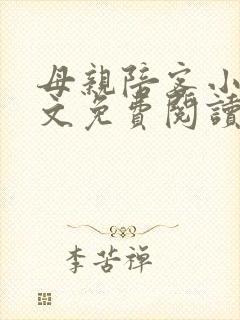 母親陪客小
文免費閱讀
李苦禪